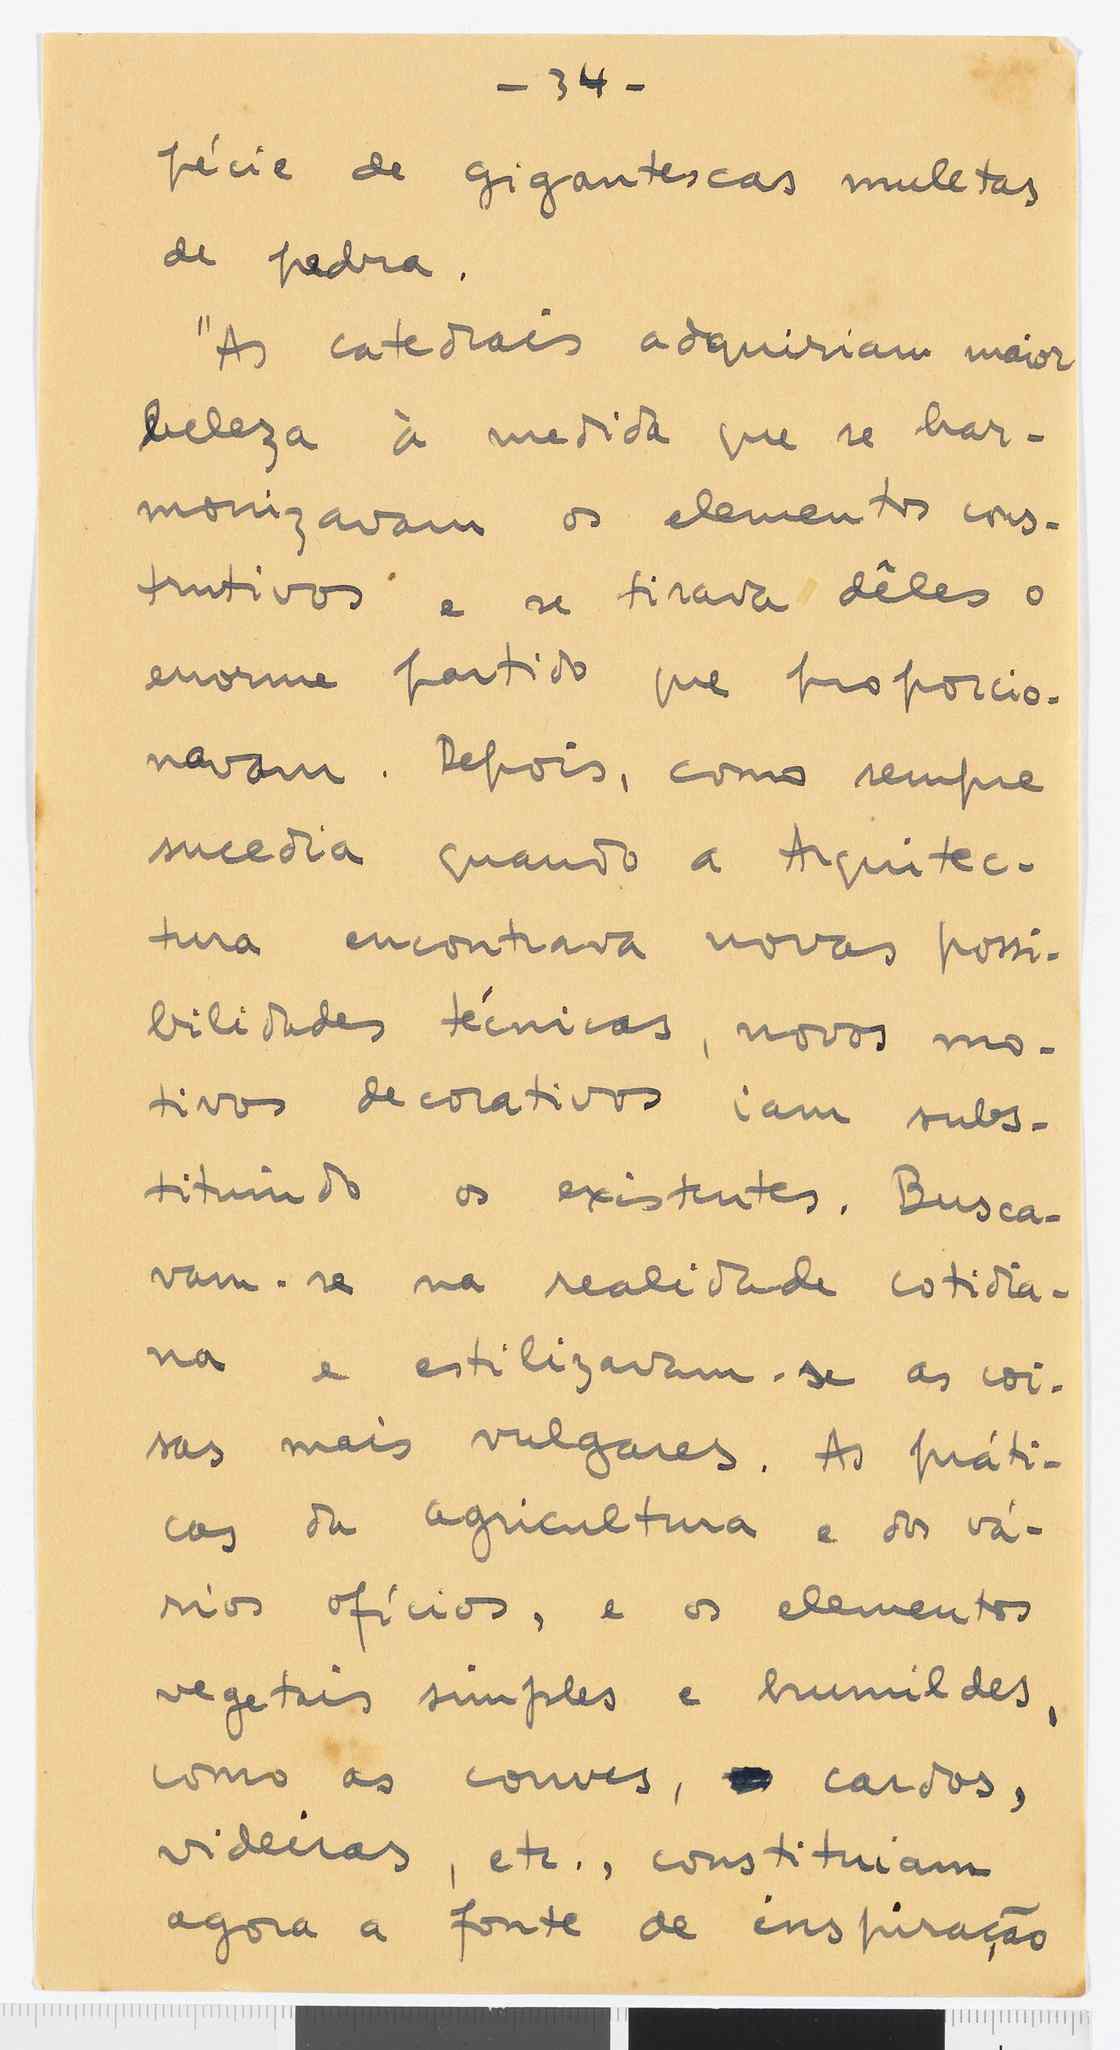 - 34 -
pécie de gigantescas muletas
de pedra.
"As catedrais adquiriam maior
beleza à medida que se har-
monizavam os elementos cons-
trutivos e se tirava dêles o
enorme partido que proporcio-
navam. Depois, como sempre
sucedia quando a Arquitec-
tura encontrava novas possi-
bilidades técnicas, novos mo-
tivos decorativos iam subs-
tituindo os existentes. Busca-
vam-se na realidade cotidia-
na e estilizavam-se as coi-
sas mais vulgares. As práti-
cas da agricultura e dos vá-
rios ofícios, e os elementos
vegetais simples e humildes,
como as couves, cardos,
videiras, etc., constituiam
agora a fonte de inspiração